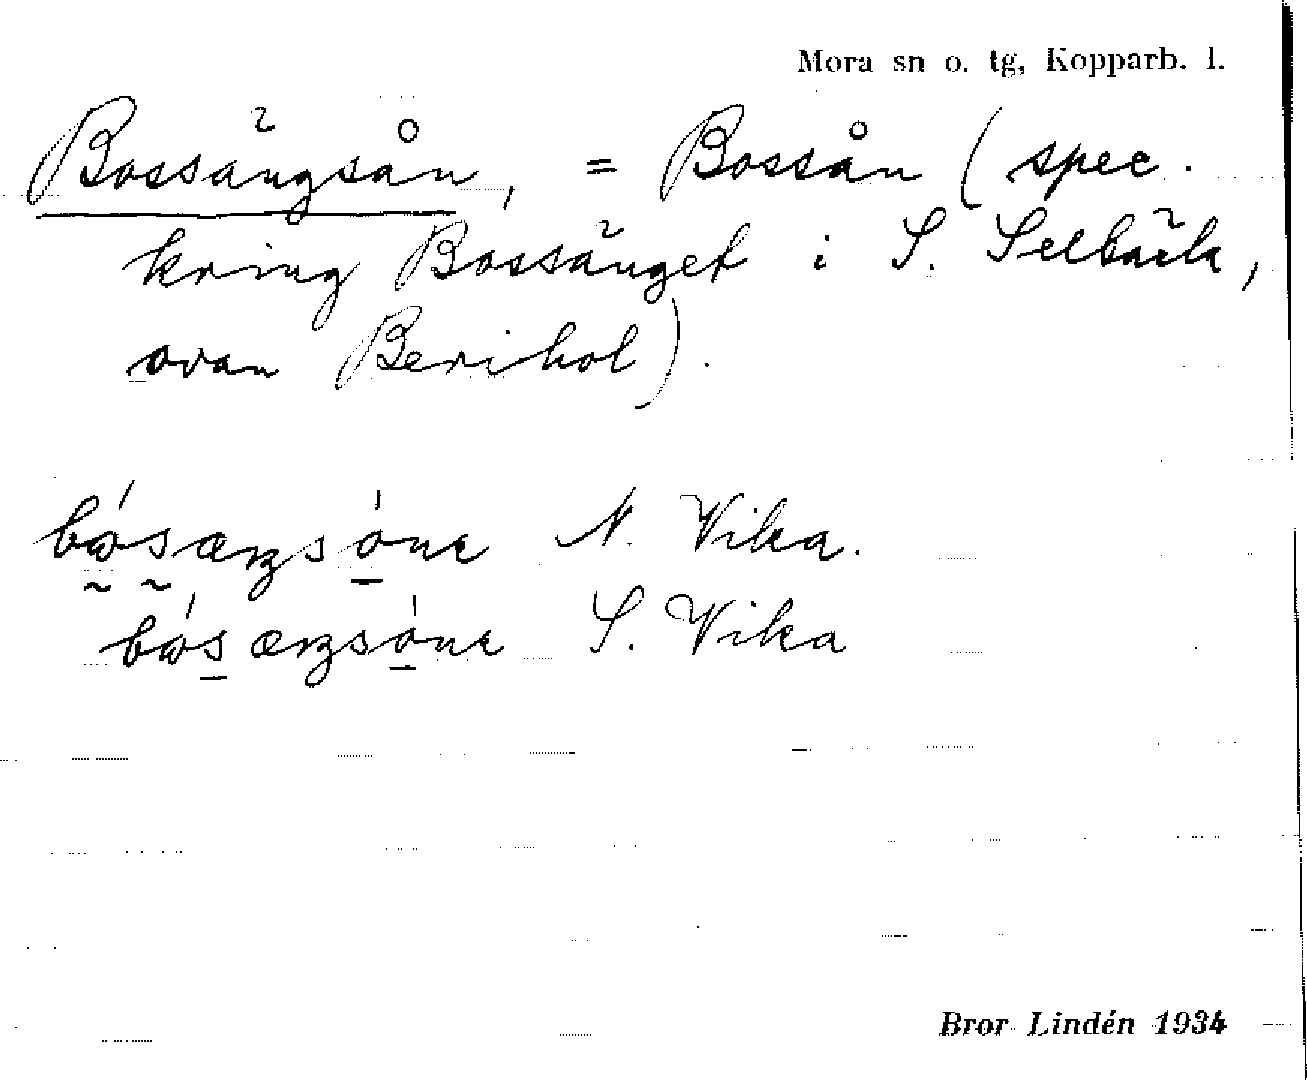 Mora sn o. tg, Kopparb. l.
Bossängsån, = Bossån (spec.
kring Bossänget i S. Selbäck,
ovan Berikol).
N. Vika.
S. Vika
Bror Lindén 1934